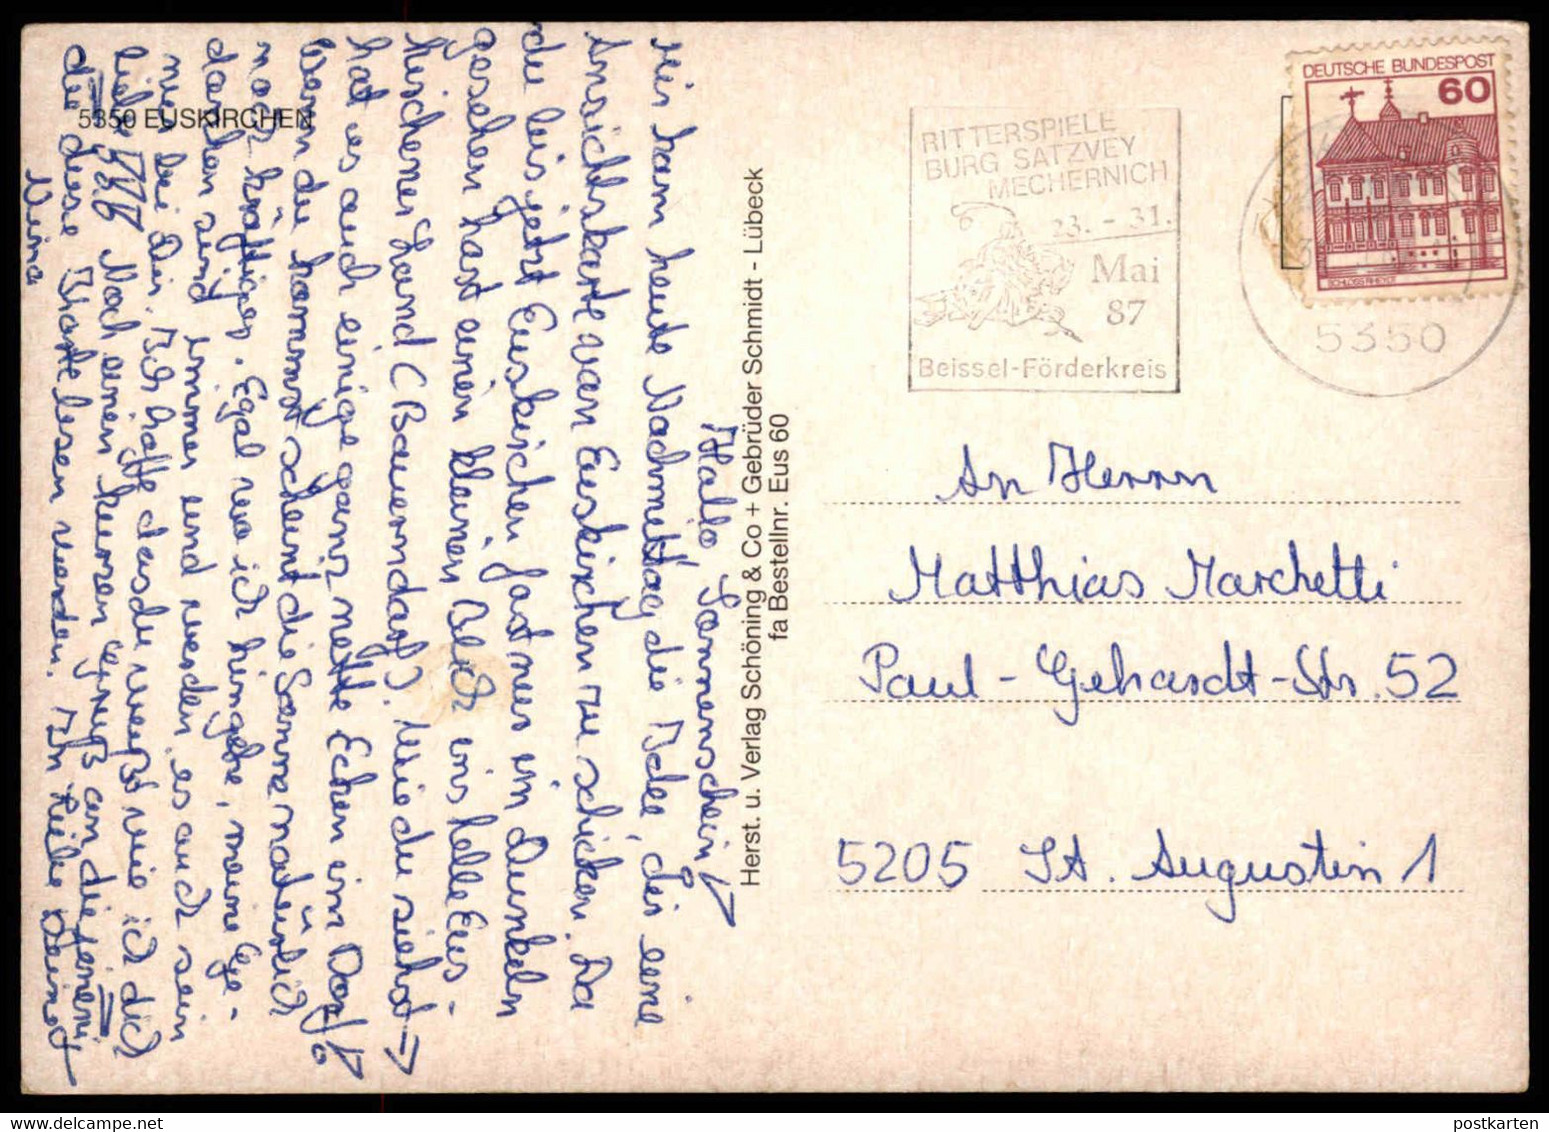 5350 EUSKIRCHEN
Hallo Sonnenschein!
Mir kam heute Nachmittag die Idee, dir eine
Ansichtskarte von Euskirchen zu schicken. Da
du bis jetzt Euskirchen fast nur im Dunkeln
gesehen hast einen kleinen Blick ins helle Eus-
kirchener Land (Bauerndorf). Wie du siehst →
hat es auch einige ganz nette Ecken im Dorf!
Wenn du kommst scheint die Sonne natürlich
noch kräftiger. Egal wo ich hingehe, meine Ge-
danken sind immer und werden es auch sein
nur bei Dir. Ich hoffe das du weißt wie ich dich
liebe
Noch einen kurzen Gruß an diejenigen
die diese Karte lesen werden. In Liebe Deine
Nina
Herst. u. Verlag Schöning & Co + Gebrüder Schmidt - Lübeck
fa Bestellnr. Eus 60
RITTERSPIELE
BURG SATZVEY
MECHERNICH
23. - 31.
Mai
87
Beissel-Förderkreis
5350
DEUTSCHE BUNDESPOST
60
SCHLOSS RHEYDT
An Herrn
Matthias Marchetti
Paul-Gehardt-Str. 52
5205 St. Augustin 1
postkarten